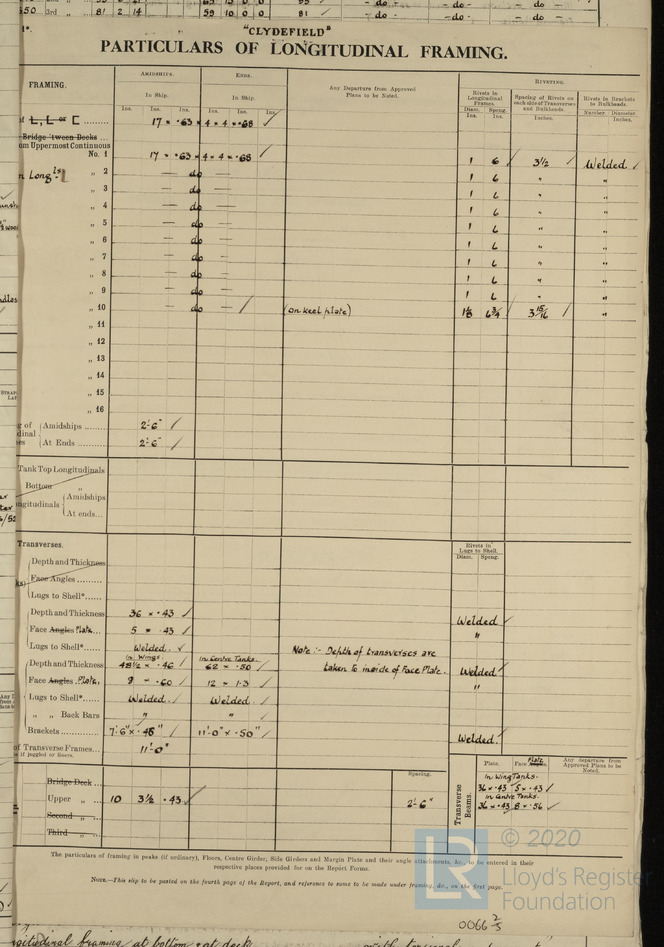 50 3rd 81 2 14 59 15 0 0 81 - do - - do - - do -
"CLYDEFIELD"
PARTICULARS OF LONGITUDINAL FRAMING.
FRAMING.
AMIDSHIPS.
ENDS.
Any Departure from Approved Plans to be Noted.
RIVETING.
In Ship.
In Ship.
Rivets in Longitudinal Frames.
Spacing of Rivets on each side of Transverses and Bulkheads.
Rivets in Brackets to Bulkheads.
Ins. Ins. Ins. Ins. Ins. Ins.
Diam. Ins. Spcng. Ins.
Inches.
Number. Diameter. Inches.
L, L or C 17 × ·63 × 4 × 4 × ·68 ✓
Bridge 'tween Decks
om Uppermost Continuous
No. 1 17 × ·63 × 4 × 4 × ·68 ✓ 1 6 ✓ 3½ ✓ Welded ✓
Long ls „ 2 — do — 1 6 " "
„ 3 — do — 1 6 " "
„ 4 — do — 1 6 " "
„ 5 — do — 1 6 " "
„ 6 — do — 1 6 " "
„ 7 — do — 1 6 " "
„ 8 — do — 1 6 " "
„ 9 — do — 1 6 " "
„ 10 — do — ✓ (on keel plate) 1⅛ 6¾ ✓ 3 15/16 ✓ "
„ 11
„ 12
„ 13
„ 14
„ 15
„ 16
g of Amidships 2'-6" ✓
dinal
es At Ends 2'-6" ✓
Tank Top Longitudinals
Bottom „
ngitudinals Amidships
At ends...
Transverses.
Rivets in Lugs to Shell.
Diam. Spcng.
Depth and Thickness
Face Angles
Lugs to Shell*
Depth and Thickness 36 × ·43 ✓ Welded ✓
Face Angles Plate 5 × ·43 ✓ "
Lugs to Shell* Welded. ✓
Note :- Depth of transverses are
taken to inside of Face Plate.
In Wings. In Centre Tanks.
Depth and Thickness 48½ × ·46 ✓ 62 × ·50 ✓ Welded ✓
Face Angles. Plate. 9 × ·60 ✓ 12 × 1·3 ✓ "
Lugs to Shell* Welded. ✓ Welded. ✓
„ „ Back Bars " "
Brackets 7'·6" × ·48" ✓ 11'·0" × ·50" ✓ Welded. ✓
of Transverse Frames... 11'·0"
if joggled or liners.
Spacing.
Transverse Beams.
Plate. Face Angles. Plate
Any departure from Approved Plans to be Noted.
Bridge Deck
In Wing Tanks.
36 × ·43 5 × ·43 ✓
In Centre Tanks.
36 × ·43 8 × ·56 ✓
Upper „ 10 3½ ·43 ✓ 2'-6"
Second „
Third „
The particulars of framing in peaks (if ordinary), Floors, Centre Girder, Side Girders and Margin Plate and their angle attachments, &c., to be entered in their
respective places provided for on the Report Forms.
NOTE.—This slip to be pasted on the fourth page of the Report, and reference to same to be made under framing, &c., on the first page.
LR
© 2020
Lloyd's Register
Foundation
0066 2/3
gitudinal framing at bottom & at deck